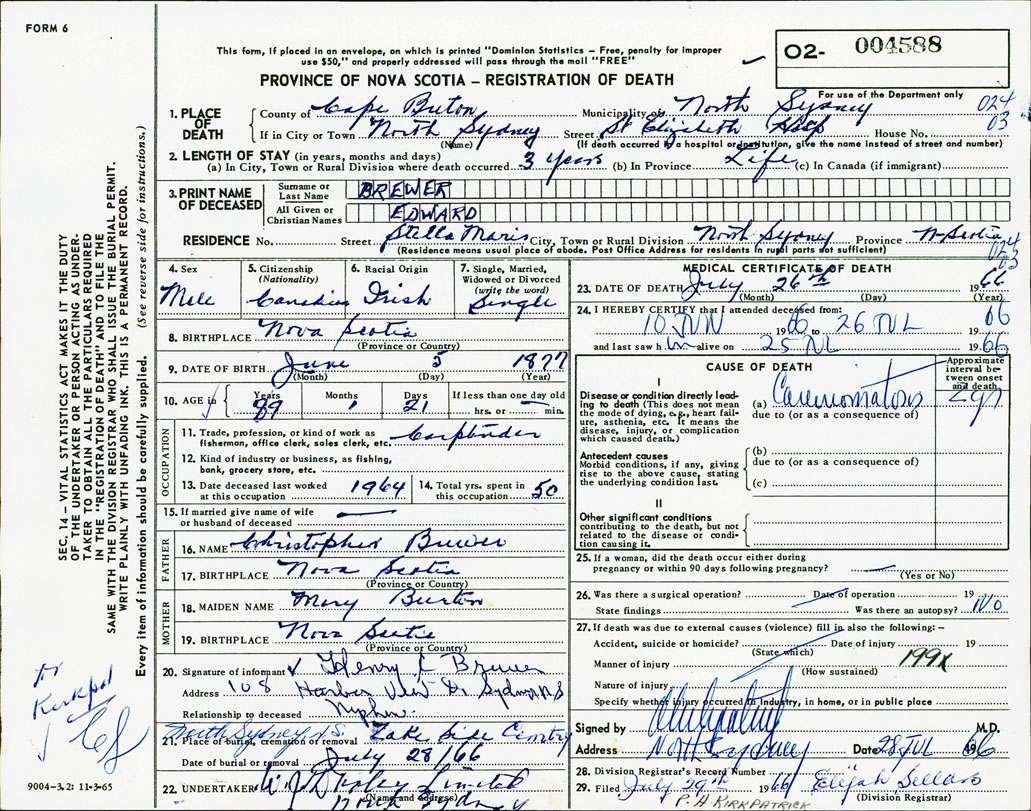 FORM 6
This form, if placed in an envelope, on which is printed "Dominion Statistics – Free, penalty for improper
use $50," and properly addressed will pass through the mail "FREE"
O2- 004588
PROVINCE OF NOVA SCOTIA – REGISTRATION OF DEATH
For use of the Department only
024
03
1. PLACE OF DEATH County of Cape Breton Municipality of North Sydney
If in City or Town North Sydney Street St Elizabeth Hosp House No.
(Name) (If death occurred in a hospital or institution, give the name instead of street and number)
2. LENGTH OF STAY (in years, months and days)
(a) In City, Town or Rural Division where death occurred 3 years (b) In Province Life (c) In Canada (if immigrant)
3. PRINT NAME OF DECEASED
Surname or Last Name BREWER
All Given or Christian Names EDWARD
RESIDENCE No. Street Stella Maris City, Town or Rural Division North Sydney Province N Scotia
(Residence means usual place of abode. Post Office Address for residents in rural parts not sufficient)
024
03
4. Sex Male
5. Citizenship (Nationality) Canadian
6. Racial Origin Irish
7. Single, Married, Widowed or Divorced (write the word) Single
8. BIRTHPLACE Nova Scotia
(Province or Country)
9. DATE OF BIRTH June 5 1877
(Month) (Day) (Year)
10. AGE in Years 89 Months 1 Days 21 If less than one day old
hrs. or min.
OCCUPATION
11. Trade, profession, or kind of work as fisherman, office clerk, sales clerk, etc. Carpender
12. Kind of industry or business, as fishing, bank, grocery store, etc.
13. Date deceased last worked at this occupation 1964
14. Total yrs. spent in this occupation 50
15. If married give name of wife or husband of deceased
FATHER
16. NAME Christopher Brewer
17. BIRTHPLACE Nova Scotia
(Province or Country)
MOTHER
18. MAIDEN NAME Mary Burton
19. BIRTHPLACE Nova Scotia
(Province or Country)
20. Signature of informant Henry L Brewer
Address 108 Harbor View Dr Sydney N S
Relationship to deceased Nephew.
North Sydney N.S.
21. Place of burial, cremation or removal Lake Side Cemtry
Date of burial or removal July 28/66
22. UNDERTAKER Limited
(Name and address)
Sydney
MEDICAL CERTIFICATE OF DEATH
23. DATE OF DEATH July 26th 1966
(Month) (Day) (Year)
24. I HEREBY CERTIFY that I attended deceased from:
10 JUN 1966 to 26 JUL 1966
and last saw him alive on 25 JUL 1966
CAUSE OF DEATH
Approximate interval between onset and death
I
Disease or condition directly leading to death (This does not mean the mode of dying, e.g., heart failure, asthenia, etc. It means the disease, injury, or complication which caused death.)
(a) Carcinomatosis
due to (or as a consequence of)
Antecedent causes
Morbid conditions, if any, giving rise to the above cause, stating the underlying condition last.
(b)
due to (or as a consequence of)
(c)
II
Other significant conditions
contributing to the death, but not related to the disease or condition causing it.
25. If a woman, did the death occur either during
pregnancy or within 90 days following pregnancy?
(Yes or No)
26. Was there a surgical operation? Date of operation 19
State findings Was there an autopsy? No
27. If death was due to external causes (violence) fill in also the following:–
Accident, suicide or homicide? Date of injury 19
(State which)
Manner of injury 199X
(How sustained)
Nature of injury
Specify whether injury occurred in industry, in home, or in public place
Signed by M.D.
Address North Sydney Date 28 JUL 1966
28. Division Registrar's Record Number
29. Filed July 29th 1966 Elijah Sellars
(Division Registrar)
P. A KIRKPATRICK
SEC. 14 – VITAL STATISTICS ACT MAKES IT THE DUTY
OF THE UNDERTAKER OR PERSON ACTING AS UNDER-
TAKER TO OBTAIN ALL THE PARTICULARS REQUIRED
IN THE "REGISTRATION OF DEATH" AND TO FILE THE
SAME WITH THE DIVISION REGISTRAR WHO SHALL ISSUE THE BURIAL PERMIT.
WRITE PLAINLY WITH UNFADING INK. THIS IS A PERMANENT RECORD.
Every item of information should be carefully supplied. (See reverse side for instructions.)
9004-3.2: 11-3-65